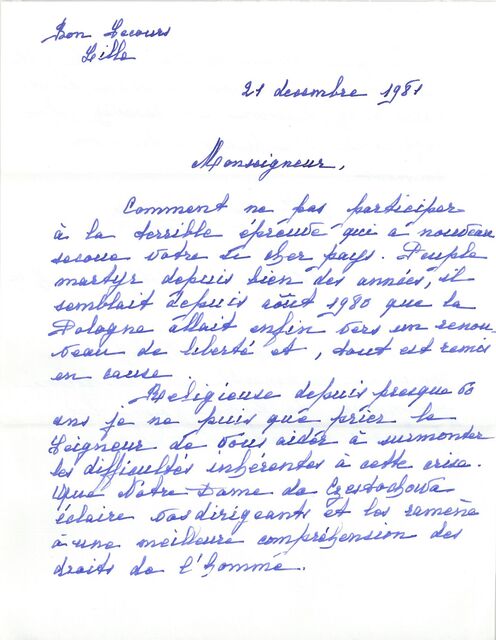 Bon Secours
Lille
21 décembre 1981
Monseigneur,
Comment ne pas participer
à la terrible épreuve qui à nouveau
secoue votre si cher pays. Peuple
martyr depuis bien des années, il
semblait depuis août 1980 que la
Pologne allait enfin vers un renou-
veau de liberté et, tout est remis
en cause
Religieuse depuis presque 60
ans je ne puis que prier le
Seigneur de vous aider à surmonter
les difficultés inhérentes à cette crise.
Que Notre Dame de Czestochowa
éclaire vos dirigeants et les ramène
à une meilleure compréhension des
droits de l'homme.